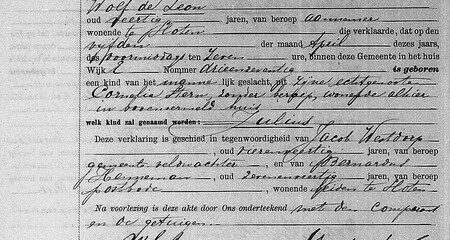 Wolf de Leon
oud veertig jaren, van beroep aannemer
wonende te Sloten die verklaarde, dat op den
vijfden der maand April dezes jaars,
des voormiddags ten zeven ure, binnen deze Gemeente in het huis
Wijk Nommer drieenzeventig is geboren
een kind van het mannelijk geslacht, uit Zijne echtgenoote
Cornelia Stern, zonder beroep, wonende alhier
in bovenvermeld huis
welk kind zal genaamd worden: Julius
Deze verklaring is geschied in tegenwoordigheid van Jacob Westdorp
, oud vierenveertig jaren, van beroep
gemeente veldwachter, en van Bernardus
Henneman, oud zevenenveertig jaren, van beroep
postbode, wonende beiden te Sloten
Na voorlezing is deze akte door Ons onderteekend met den comparant
en de getuigen.